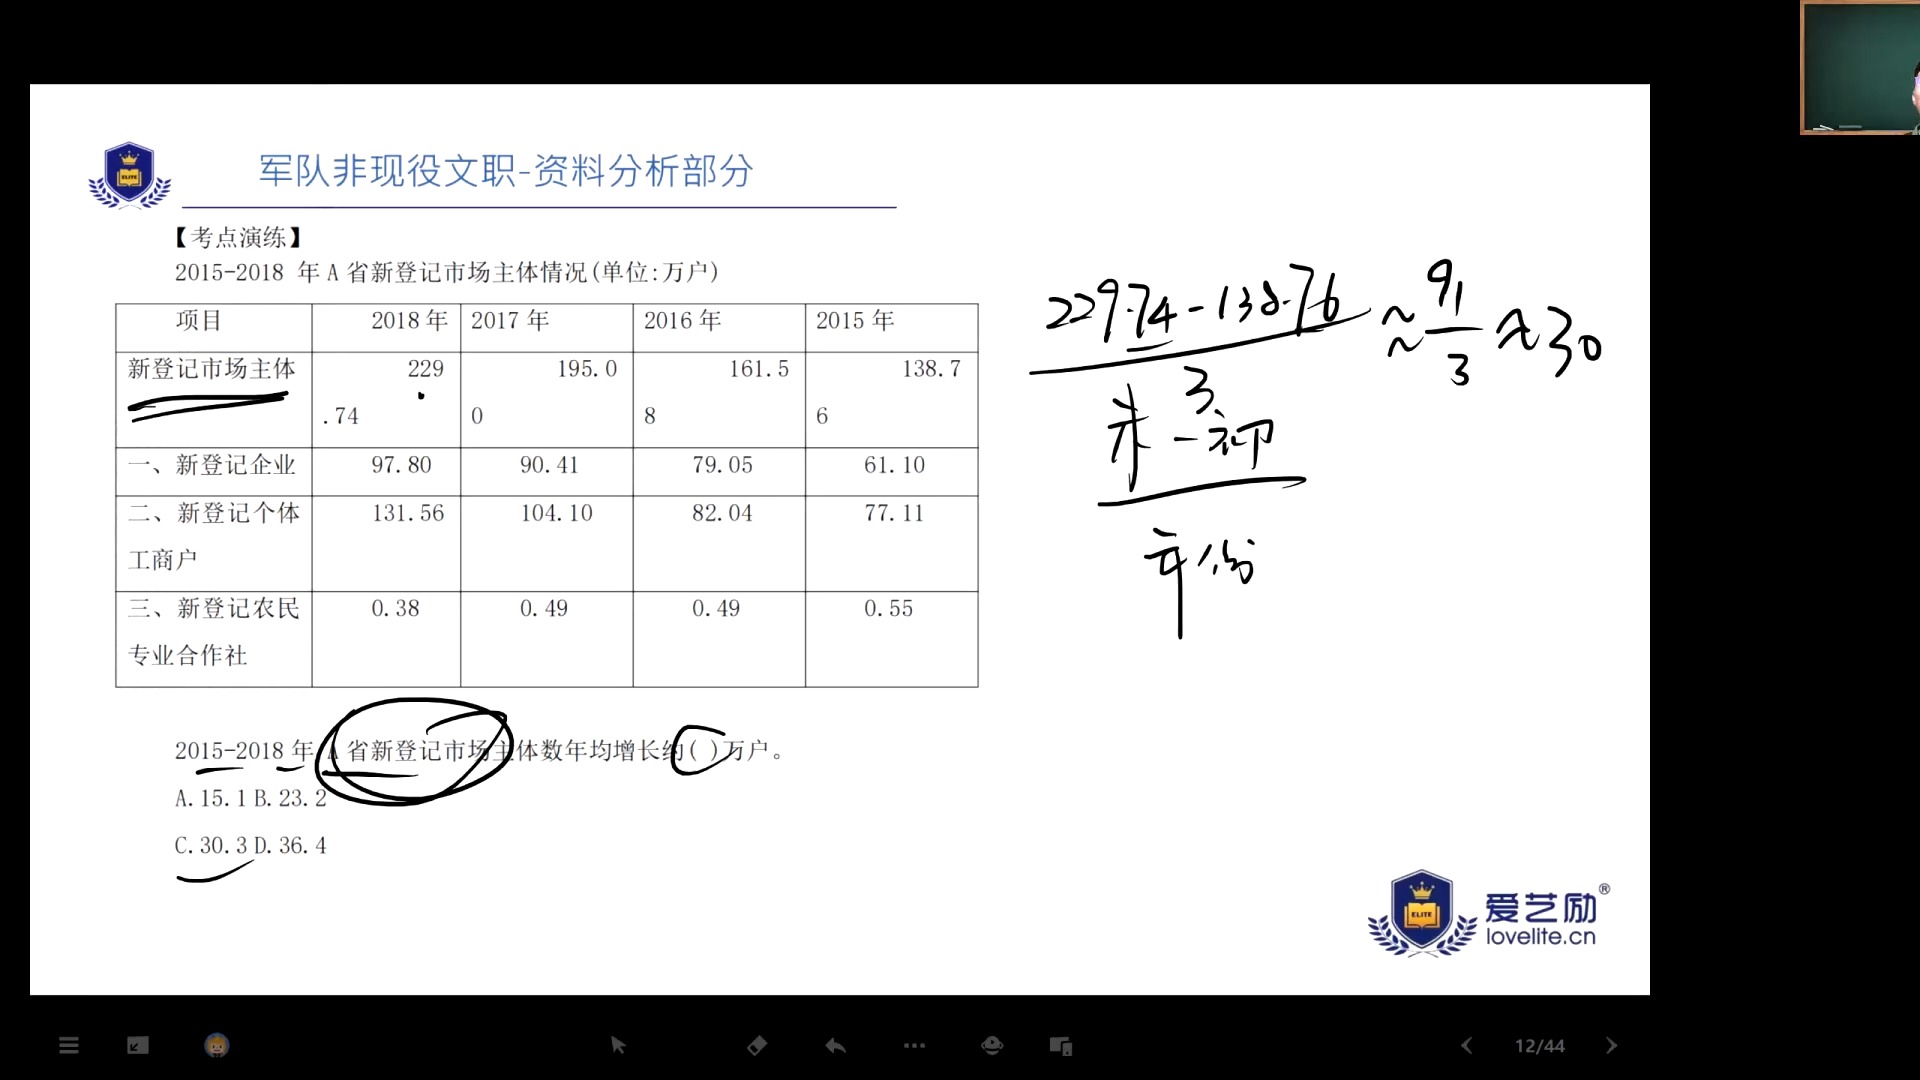 军队非现役文职-资料分析部分
ELITE
【考点演练】
2015-2018 年 A 省新登记市场主体情况(单位:万户)
项目 2018 年 2017 年 2016 年 2015 年
新登记市场主体 229.74 195.00 161.58 138.76
一、新登记企业 97.80 90.41 79.05 61.10
二、新登记个体工商户 131.56 104.10 82.04 77.11
三、新登记农民专业合作社 0.38 0.49 0.49 0.55
2015-2018 年 A 省新登记市场主体数年均增长约( )万户。
A.15.1 B.23.2
C.30.3 D.36.4
229.74-138.76
3
≈ 91
3
≈30
末-初
年份
ELITE
爱艺励®
lovelite.cn
12/44